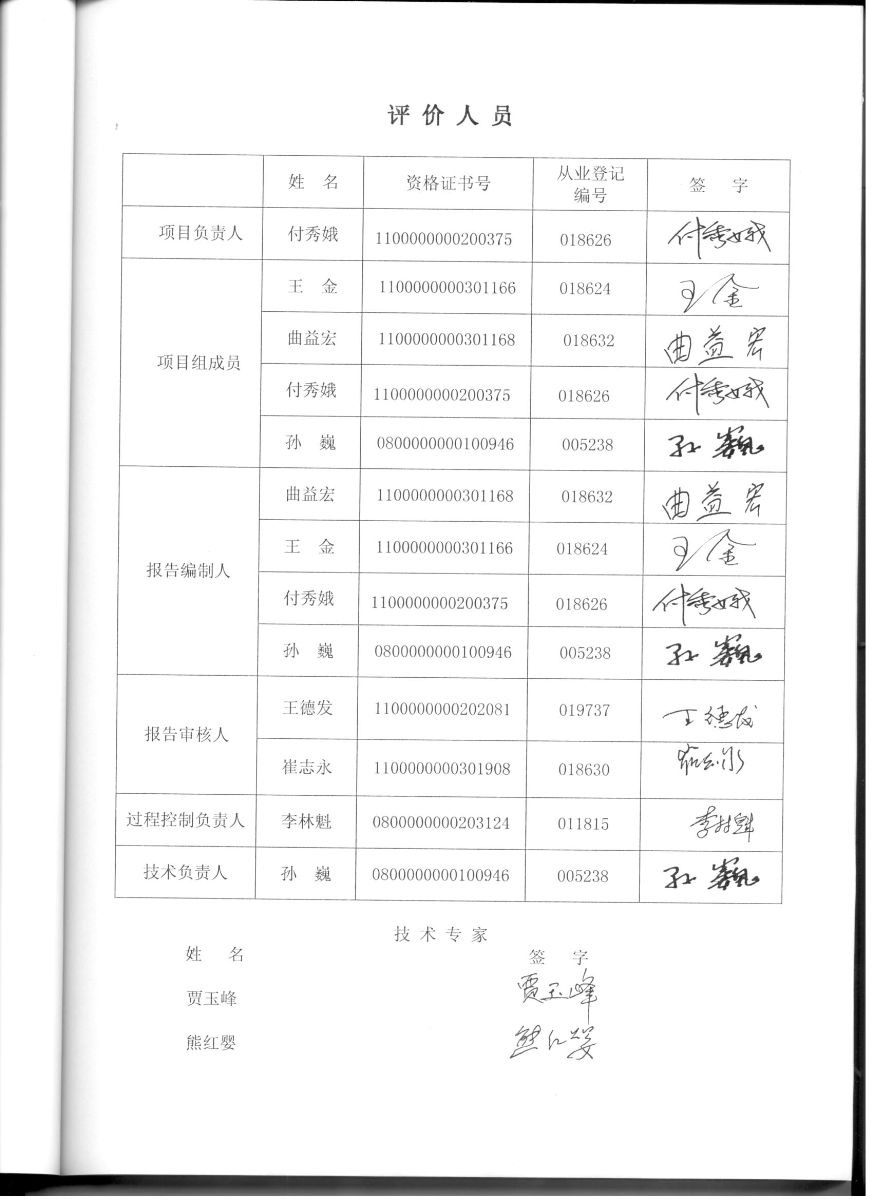 评价人员
姓 名 资格证书号 从业登记编号 签 字
项目负责人 付秀娥 1100000000200375 018626 付秀娥
项目组成员
王 金 1100000000301166 018624 王金
曲益宏 1100000000301168 018632 曲益宏
付秀娥 1100000000200375 018626 付秀娥
孙 巍 0800000000100946 005238 孙巍
报告编制人
曲益宏 1100000000301168 018632 曲益宏
王 金 1100000000301166 018624 王金
付秀娥 1100000000200375 018626 付秀娥
孙 巍 0800000000100946 005238 孙巍
报告审核人
王德发 1100000000202081 019737 王德发
崔志永 1100000000301908 018630 崔志永
过程控制负责人 李林魁 0800000000203124 011815 李林魁
技术负责人 孙 巍 0800000000100946 005238 孙巍
技术专家
姓 名 签 字
贾玉峰 贾玉峰
熊红婴 熊红婴